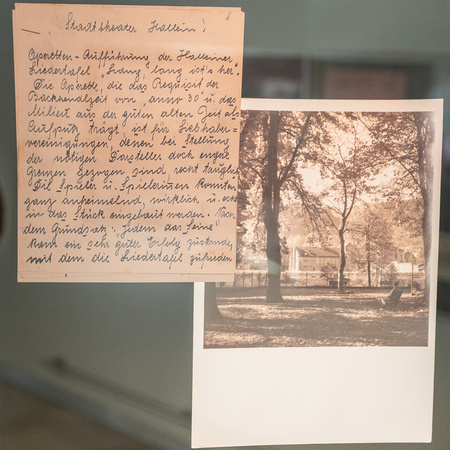 Stadttheater Hallein!
Operetten-Aufführung der Halleiner
Liedertafel "Lang, lang ist's her".
Die Operette, die das Requisit der
Backhendlzeit von "anno 30" u. das
Milieu aus der guten alten Zeit als
Aufputz trägt, ist für Liebhaber=
vereinigungen, denen bei Stellung
der nötigen Darsteller doch engere
Grenzen gezogen sind, recht tauglich.
Die Spieler u. Spielerinnen konnten
ganz anheimelnd, wirklich u. echt
in das Stück eingebaut werden. Nach
dem Grundsatz: "Jedem das Seine"
kam ein sehr guter Erfolg zustande,
mit dem die Liedertafel zufrieden